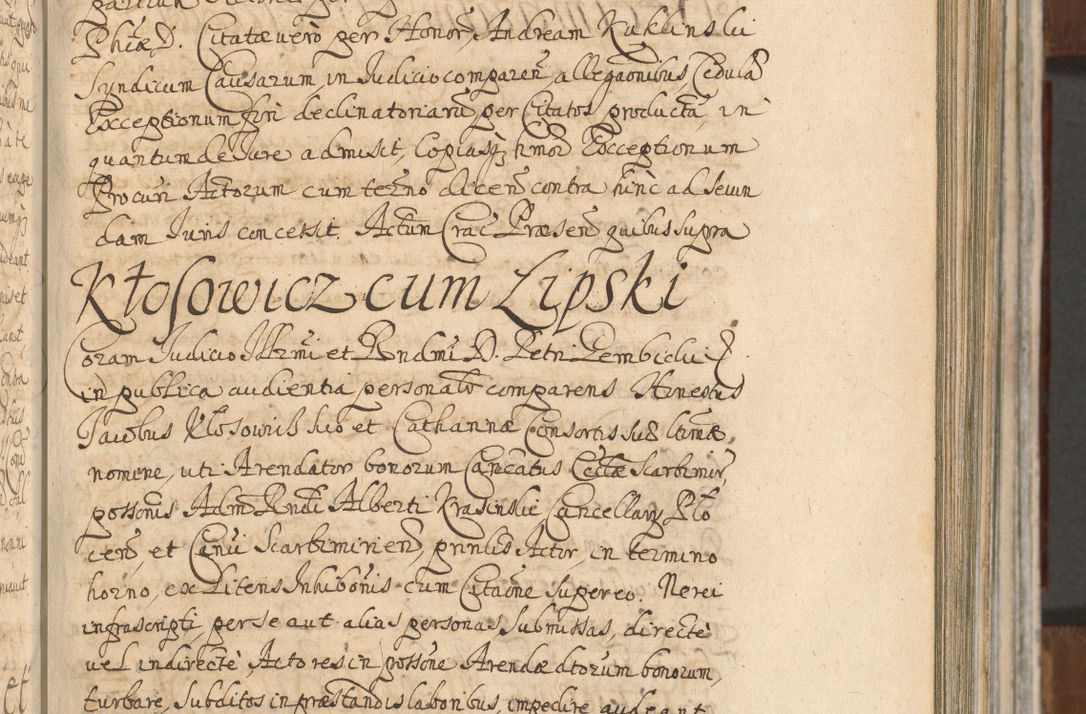 Phiæ D. Citatæ vero per Honor, Andream Kuklinski
Syndicum Causarum in Judicio comparen̄ allegaōnibus, Cedulā
Exceptionum fori declinatoriarū per Citatos productā, in
quantum de Jure admisit, Copiasq hmōi Exceptionum
Procuri Actorum cum termno dicen̄ contra hinc ad Secun
dam Juris concessit. Actum Crac Præsen̄ quibus supra
Kłosowicz cum Lipski
Coram Judicio Illrmi et Rndmi D. Petri Gembicki
in publica audientia personalr comparens Honestus
Jacobus Kłosowicz suo et Catharinæ Consortis suæ ltimæ
nomine, uti Arendator bonorum Cancatus Ecclæ Scarbimir,
possonis Adm Rndi Alberti Krasinski, Cancellary Plo
cen̄, et Canci Scarbimirien̄, prinlis Actor, in termino
horno, ex Litens Inhibōnis cum Citaōne super eo. Ne rei
infrascripti, per se aut alias personas submissas, directe
vel indirecte, Actores in possōne Arendæ dtorum bonorum,
turbare, subditos in præstandis laboribus, impedire audeant